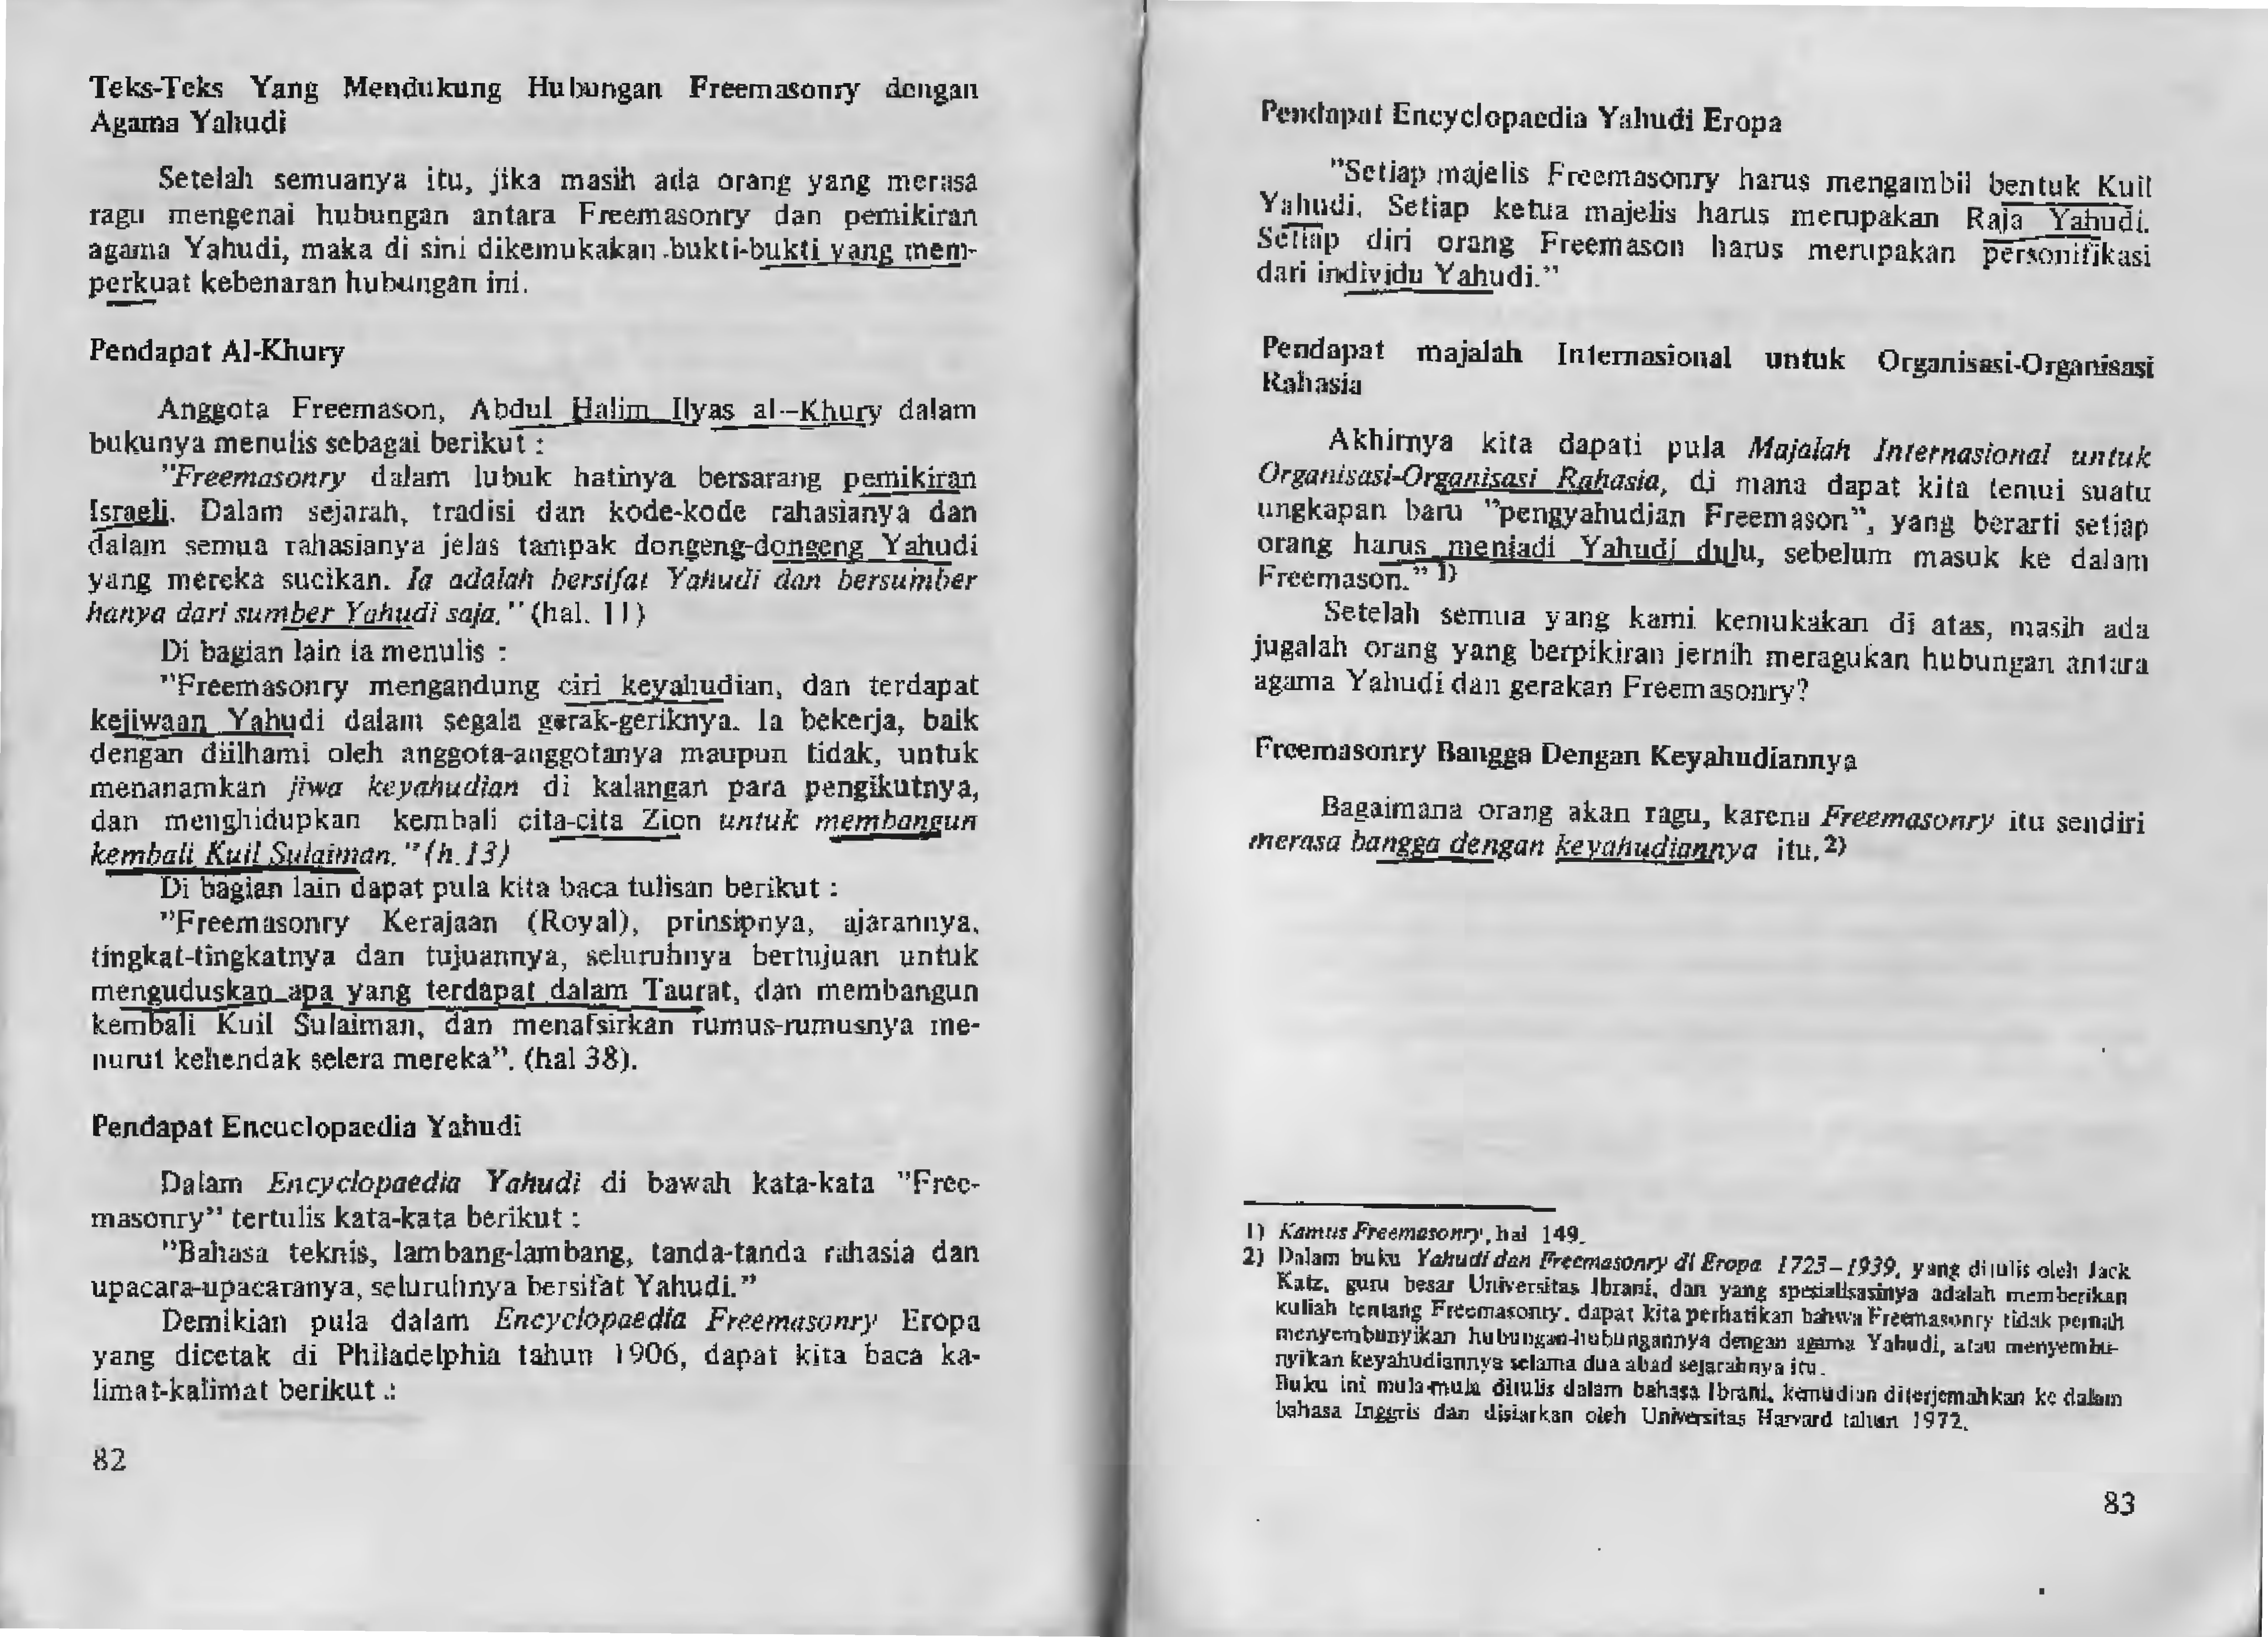 Teks-Teks Yang Mendukung Hubungan Freemasonry dengan
Agama Yahudi
Setelah semuanya itu, jika masih ada orang yang merasa
ragu mengenai hubungan antara Freemasonry dan pemikiran
agama Yahudi, maka di sini dikemukakan bukti-bukti yang mem-
perkuat kebenaran hubungan ini.
Pendapat Al-Khury
Anggota Freemason, Abdul Halim Ilyas al-Khury dalam
bukunya menulis sebagai berikut :
"Freemasonry dalam lubuk hatinya bersarang pemikiran
Israeli. Dalam sejarah, tradisi dan kode-kode rahasianya dan
dalam semua rahasianya jelas tampak dongeng-dongeng Yahudi
yang mereka sucikan. Ia adalah bersifat Yahudi dan bersumber
hanya dari sumber Yahudi saja." (hal. 11)
Di bagian lain ia menulis :
"Freemasonry mengandung ciri keyahudian, dan terdapat
kejiwaan Yahudi dalam segala gerak-geriknya. Ia bekerja, baik
dengan diilhami oleh anggota-anggotanya maupun tidak, untuk
menanamkan jiwa keyahudian di kalangan para pengikutnya,
dan menghidupkan kembali cita-cita Zion untuk membangun
kembali Kuil Sulaiman." (h.13)
Di bagian lain dapat pula kita baca tulisan berikut :
"Freemasonry Kerajaan (Royal), prinsipnya, ajarannya,
tingkat-tingkatnya dan tujuannya, seluruhnya bertujuan untuk
menguduskan apa yang terdapat dalam Taurat, dan membangun
kembali Kuil Sulaiman, dan menafsirkan rumus-rumusnya me-
nurut kehendak selera mereka". (hal 38).
Pendapat Encuclopaedia Yahudi
Dalam Encyclopaedia Yahudi di bawah kata-kata "Free-
masonry" tertulis kata-kata berikut :
"Bahasa teknis, lambang-lambang, tanda-tanda rahasia dan
upacara-upacaranya, seluruhnya bersifat Yahudi."
Demikian pula dalam Encyclopaedia Freemasonry Eropa
yang dicetak di Philadelphia tahun 1906, dapat kita baca ka-
limat-kalimat berikut .:
82
Pendapat Encyclopaedia Yahudi Eropa
"Setiap majelis Freemasonry harus mengambil bentuk Kuil
Yahudi. Setiap ketua majelis harus merupakan Raja Yahudi.
Setiap diri orang Freemason harus merupakan personifikasi
dari individu Yahudi."
Pendapat majalah Internasional untuk Organisasi-Organisasi
Rahasia
Akhirnya kita dapati pula Majalah Internasional untuk
Organisasi-Organisasi Rahasia, di mana dapat kita temui suatu
ungkapan baru "pengyahudian Freemason", yang berarti setiap
orang harus menjadi Yahudi dulu, sebelum masuk ke dalam
Freemason." 1)
Setelah semua yang kami kemukakan di atas, masih ada
jugalah orang yang berpikiran jernih meragukan hubungan antara
agama Yahudi dan gerakan Freemasonry?
Freemasonry Bangga Dengan Keyahudiannya
Bagaimana orang akan ragu, karena Freemasonry itu sendiri
merasa bangga dengan keyahudiannya itu. 2)
1) Kamus Freemasonry, hal 149.
2) Dalam buku Yahudi dan Freemasonry di Eropa 1723-1939, yang ditulis oleh Jack
Katz, guru besar Universitas Ibrani, dan yang spesialisasinya adalah memberikan
kuliah tentang Freemasonry, dapat kita perhatikan bahwa Freemasonry tidak pernah
menyembunyikan hubungan-hubungannya dengan agama Yahudi, atau menyembu-
nyikan keyahudiannya selama dua abad sejarahnya itu.
Buku ini mula-mula ditulis dalam bahasa Ibrani, kemudian diterjemahkan ke dalam
bahasa Inggris dan disiarkan oleh Universitas Harvard tahun 1972.
83